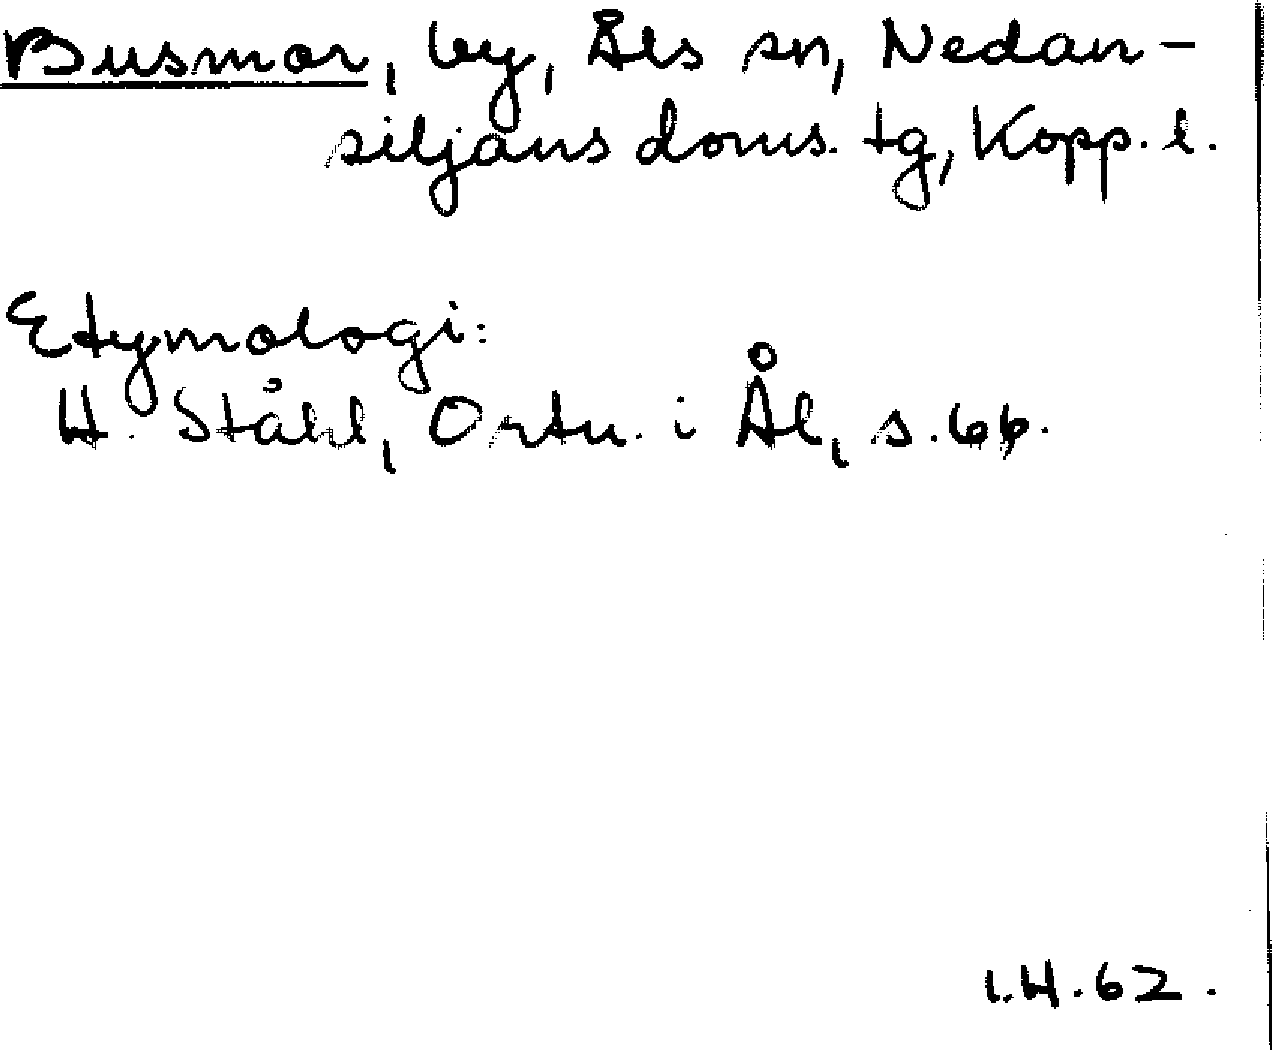 Busmor, by, Åls sn, Nedan-
siljans doms. tg, Kopp. l.
Etymologi:
H. Ståhl, Ortn. i Ål, s. 66.
I.H. 62.